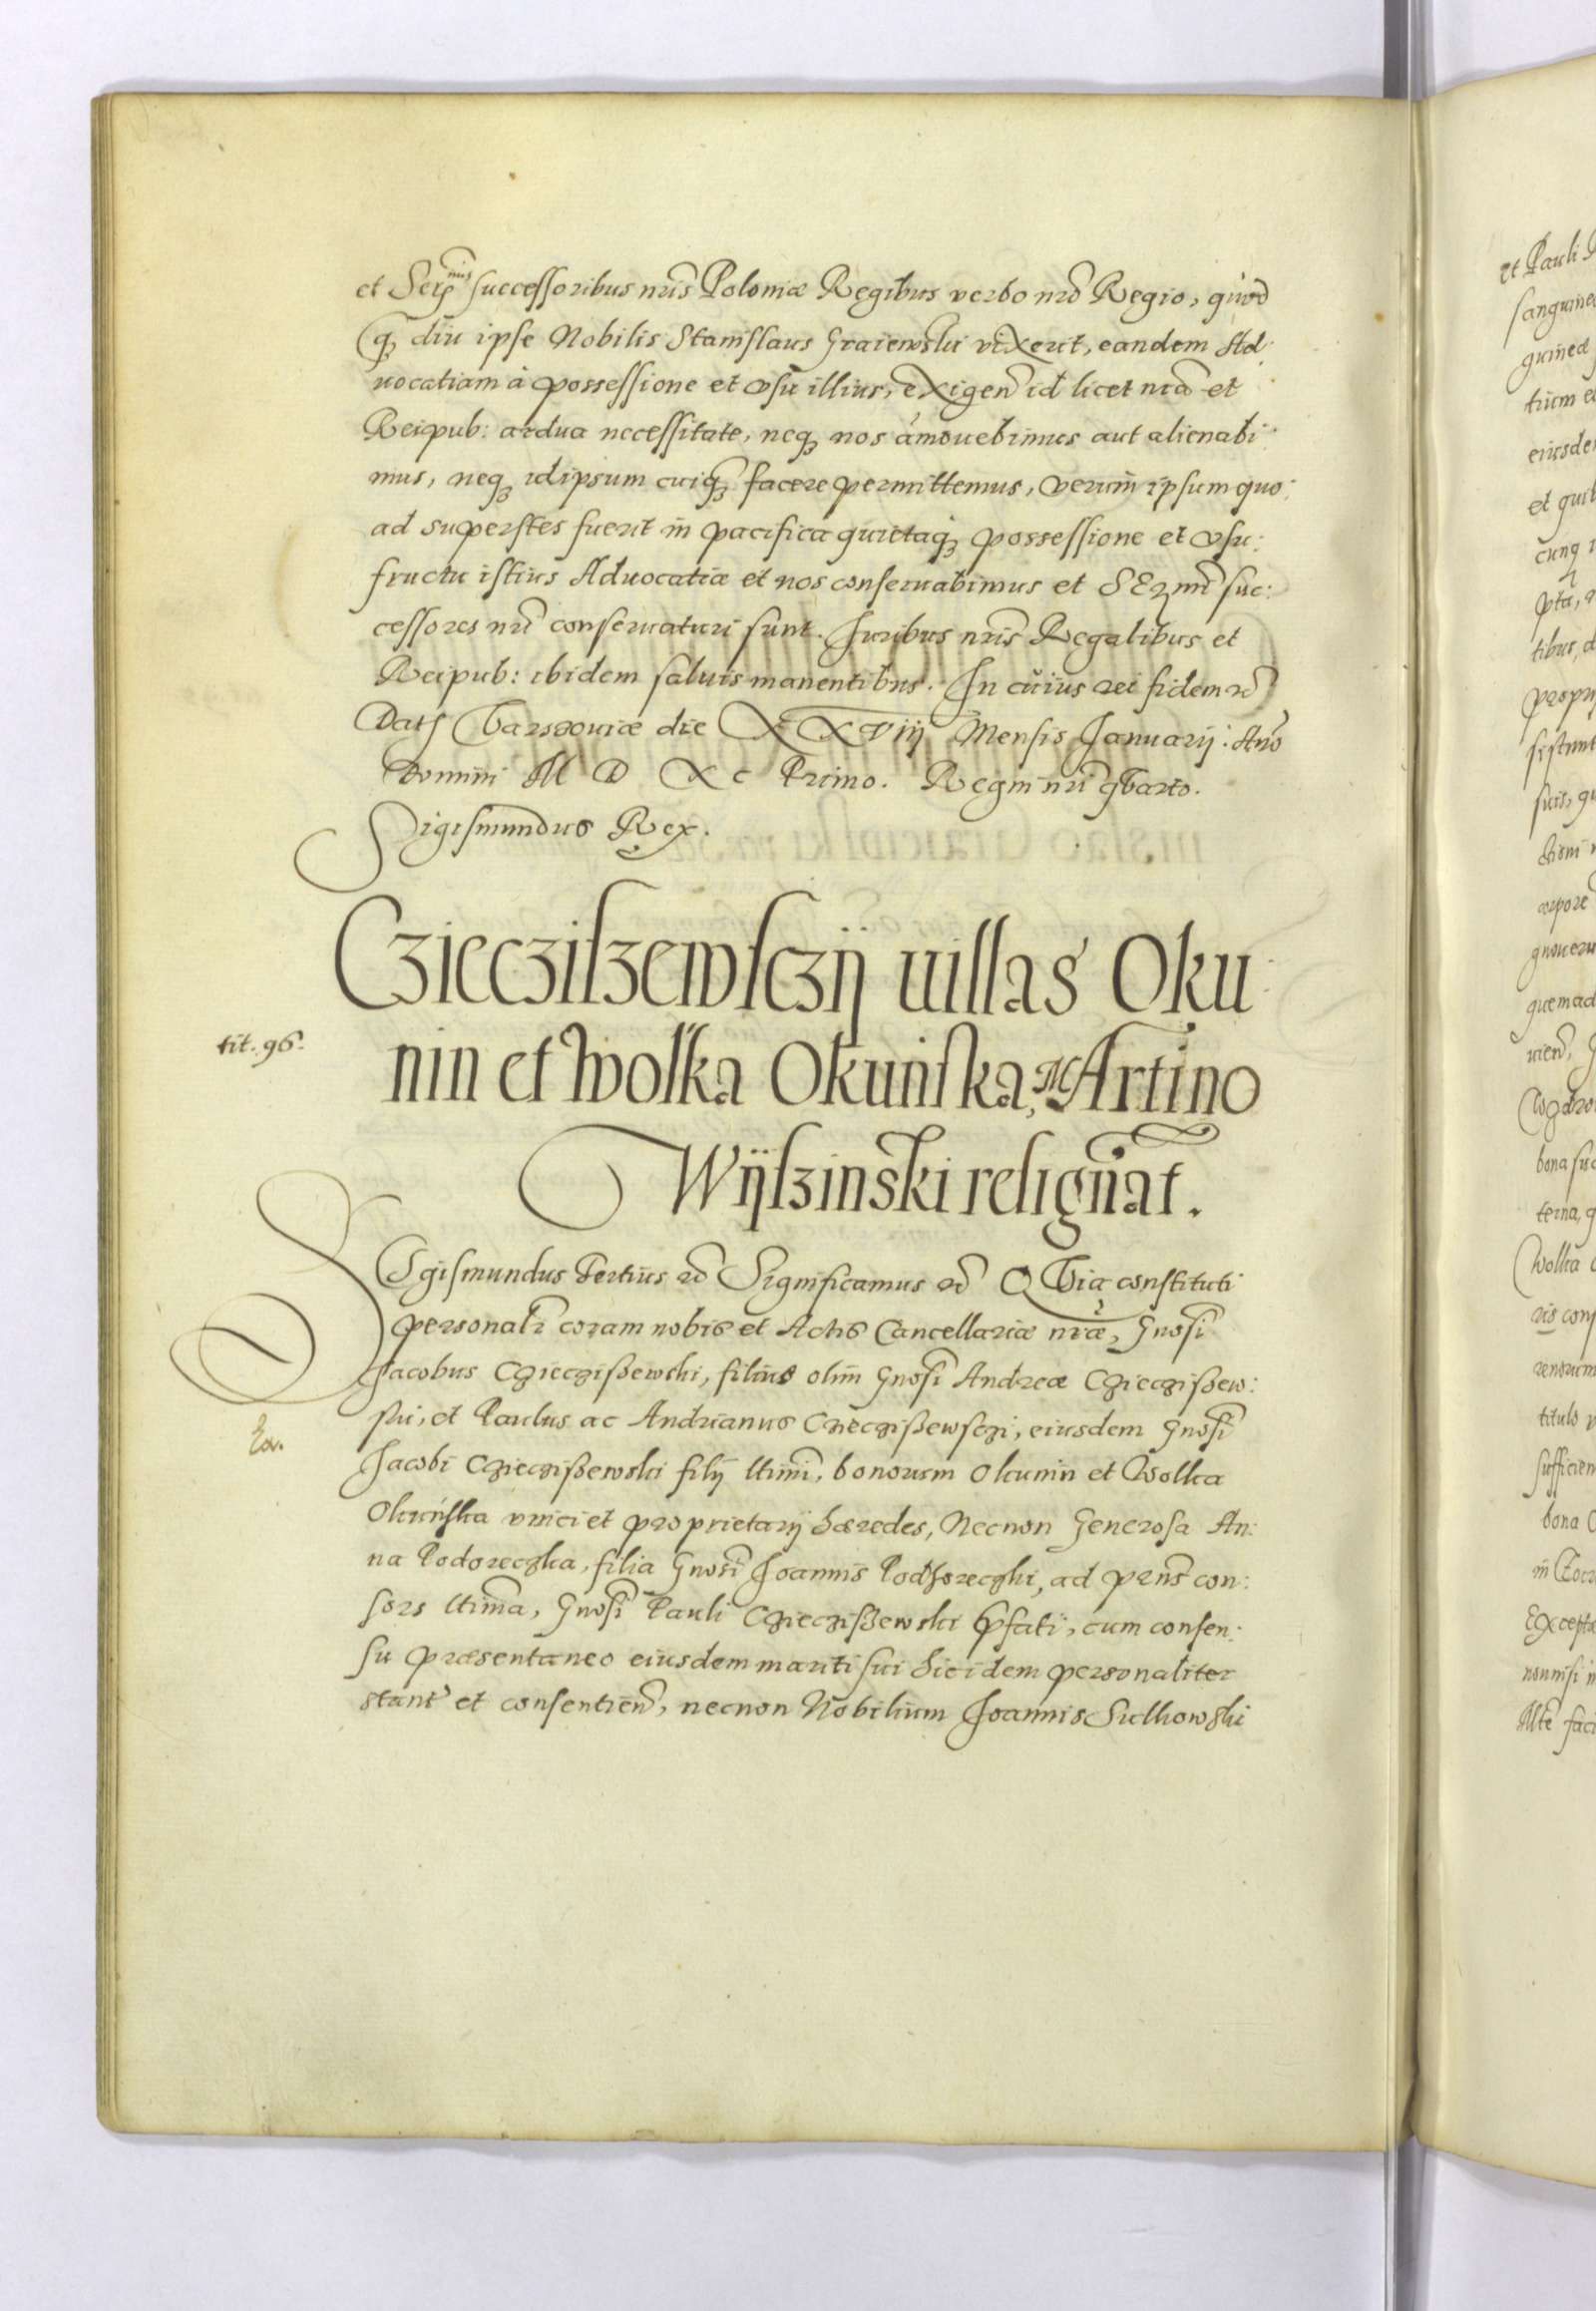 et Ser^mis successoribus nris Poloniæ Regibus verbo nro Regio, quod
q̃ diu ipse Nobilis Stanislaus Graiewski vixerit, eandem Ad:
uocatiam à possessione et vsu illius, exigeñ id licet nra et
Reipub: ardua necessitate, neq̃ nos amouebimus aut alienabi:
mus, neq̃ idipsum cuiq̃ facere permittemus, verum ipsum quo:
ad superstes fuerit in pacifica quietaq̃ possessione et vsu:
fructu istius Aduocatiæ et nos conseruabimus et Serm̃i suc:
cessores nri conseruaturi sunt. Iuribus nris Regalibus et
Reipub: ibidem saluis manentibus. In cuius rei fidem rc̃
Dat Varsouiæ die XXViij Mensis Januarij. Ano
Domini M D XC Primo. Regni nri qVarto.
Sigismundus Rex.
Cziecziszewsczij uillas Oku
tit. 96.
nin et Wolka Okuńska, MArtino
Wÿszinski resignat.
SIgismundus Tertius rc̃ Significamus rc̃ QVia constituti
personalr̃ coram nobis et Actis Cancellariæ nræ, Gnosi
Jacobus Czieczißewski, filius olim Gnosi Andreæ Czieczißew:
ski, et Paulus ac Andrianus Czieczißewsczi, eiusdem Gnosi
Jacobi Czieczißewski filij ltimi, bonorum Okunin et Wolka
Okuńska vnici et proprietarij hæredes, Necnon Generosa An:
na Podoreczka, filia Gnosi Joannis Podhoreczki, ad prns con:
sors ltima, Gnosi Pauli Czieczißewski pfati, cum consen:
su præsentaneo eiusdem mariti sui hic idem personaliter
stant et consentien̄, necnon Nobilium Joannis Sulkowski